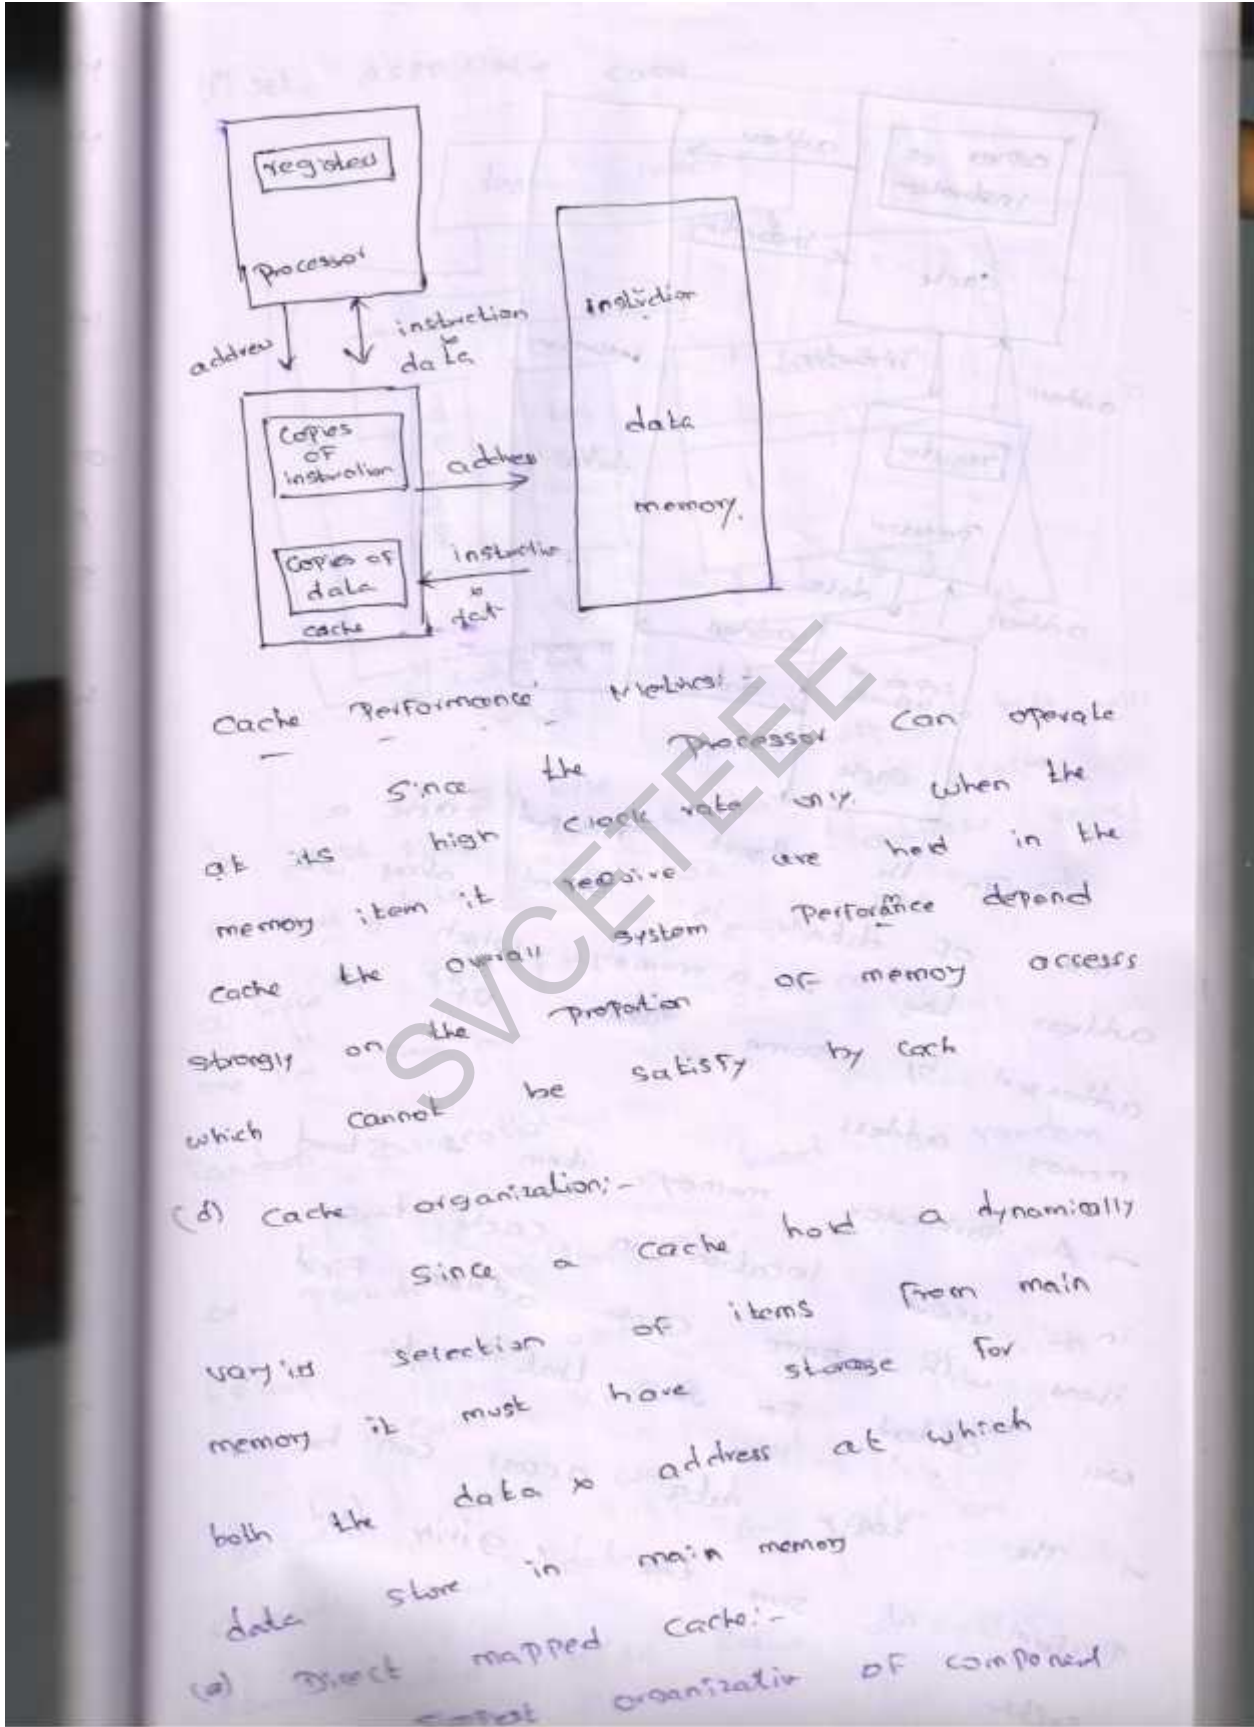 registers
Processor
address
instruction
&
data
copies
OF
instruction
copies of
data
cache
address
instructio
&
dat
instuction
data
memory.
Cache Performance Metrics:-
Since the Processor can operate
at its high clock rate only when the
memory item it require are held in the
cache the overall system Performance depend
strongly on the Proportion OF memoy accesss
which cannot be satisfy by cach
(d) Cache organization:-
Since a cache hold a dynamically
varyin selection of items from main
memory it must have storage for
both the data & address at which
data store in main memory
(a) Direct mapped cache:-
organizatin OF component
SVCETEEE